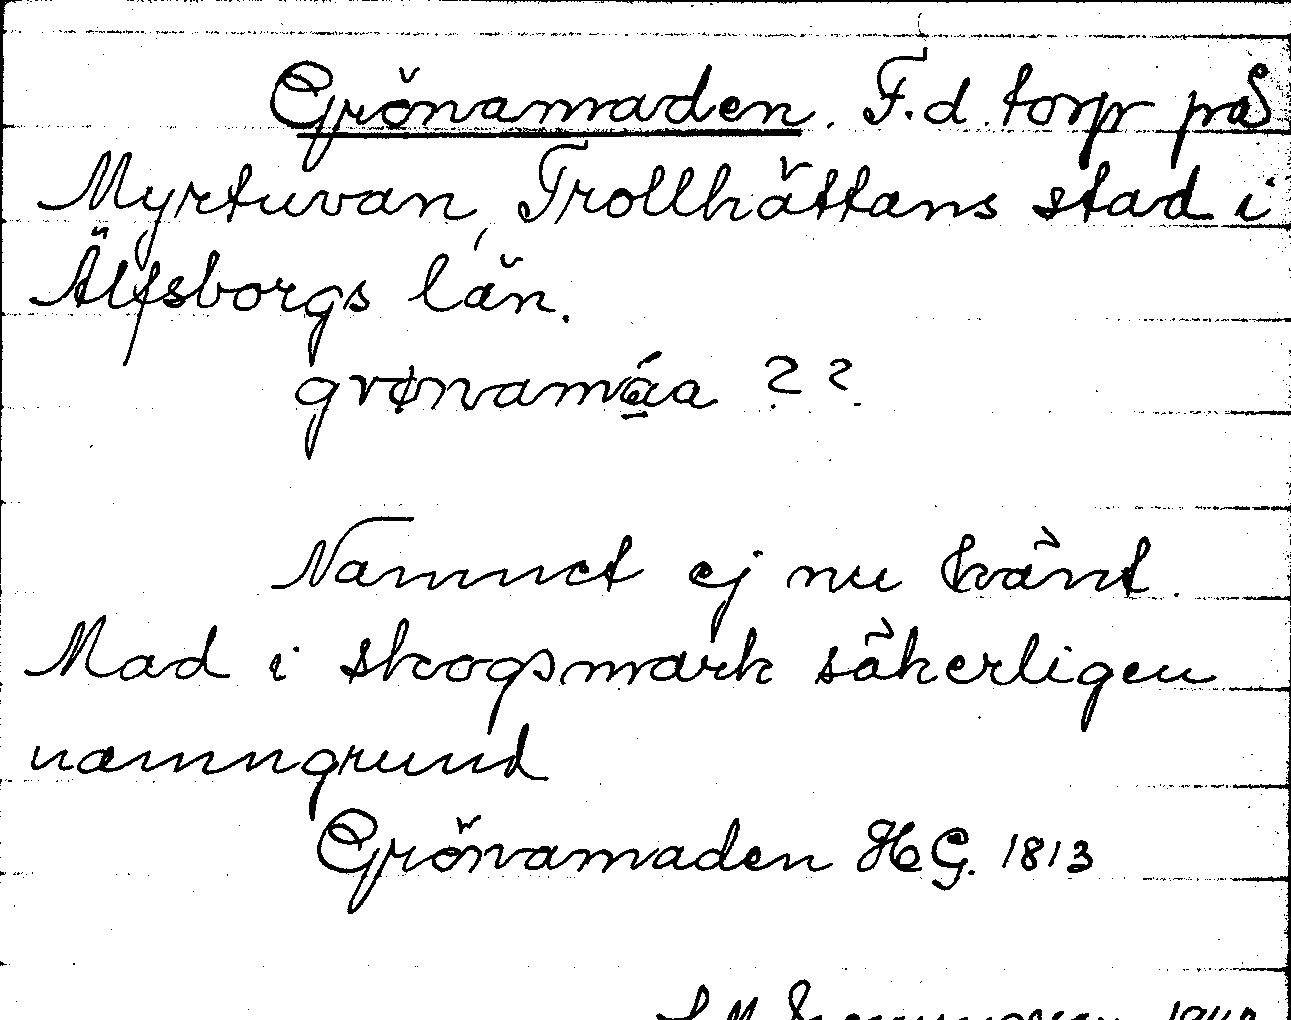 Grönamaden. F.d. torp på
Myrtuvan, Trollhättans stad i
Älfsborgs län.
grønamáa ??
Namnet ej nu känt.
Mad i skogsmark säkerligen
namngrund
Grönamaden HG. 1813